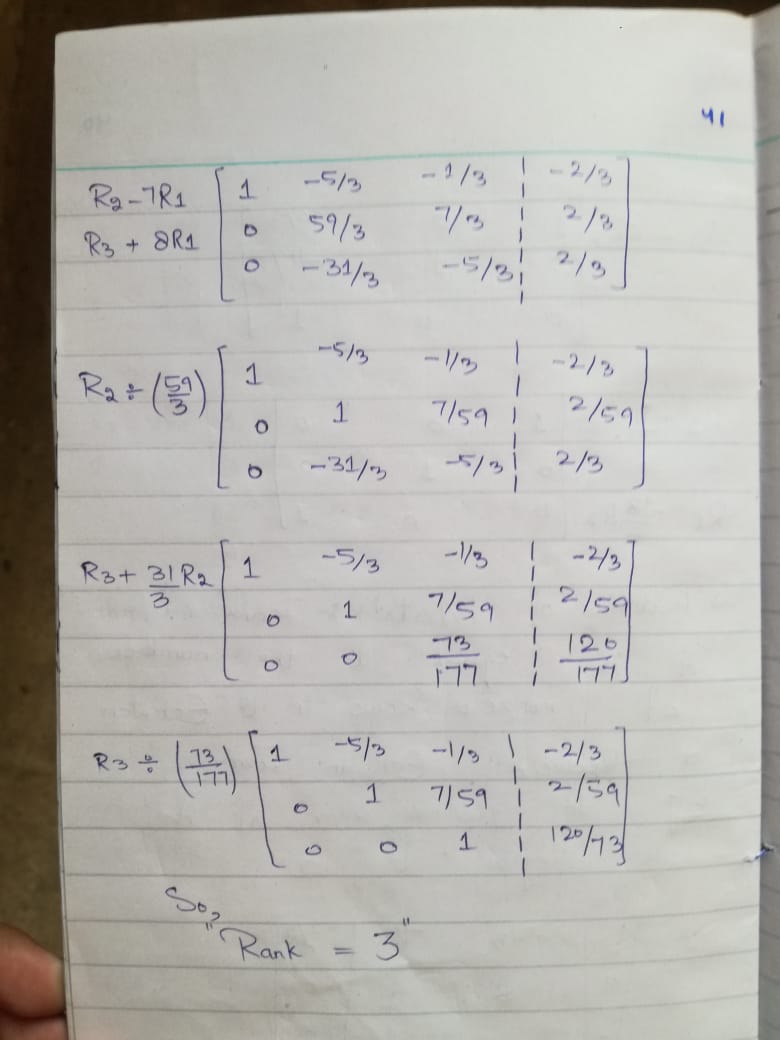 41
R2-7R1 [ 1 -5/3 -1/3 | -2/3 ]
R3 + 8R1 [ 0 59/3 7/3 | 2/3 ]
[ 0 -31/3 -5/3 | 2/3 ]
R2 ÷ (59/3) [ 1 -5/3 -1/3 | -2/3 ]
[ 0 1 7/59 | 2/59 ]
[ 0 -31/3 -5/3 | 2/3 ]
R3 + 31/3 R2 [ 1 -5/3 -1/3 | -2/3 ]
[ 0 1 7/59 | 2/59 ]
[ 0 0 73/177 | 120/177 ]
R3 ÷ (73/177) [ 1 -5/3 -1/3 | -2/3 ]
[ 0 1 7/59 | 2/59 ]
[ 0 0 1 | 120/73 ]
So,
"Rank = 3"